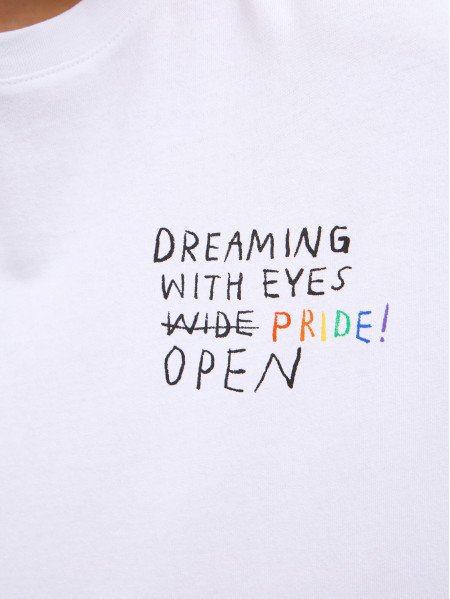 DREAMING
WITH EYES
WIDE PRIDE!
OPEN